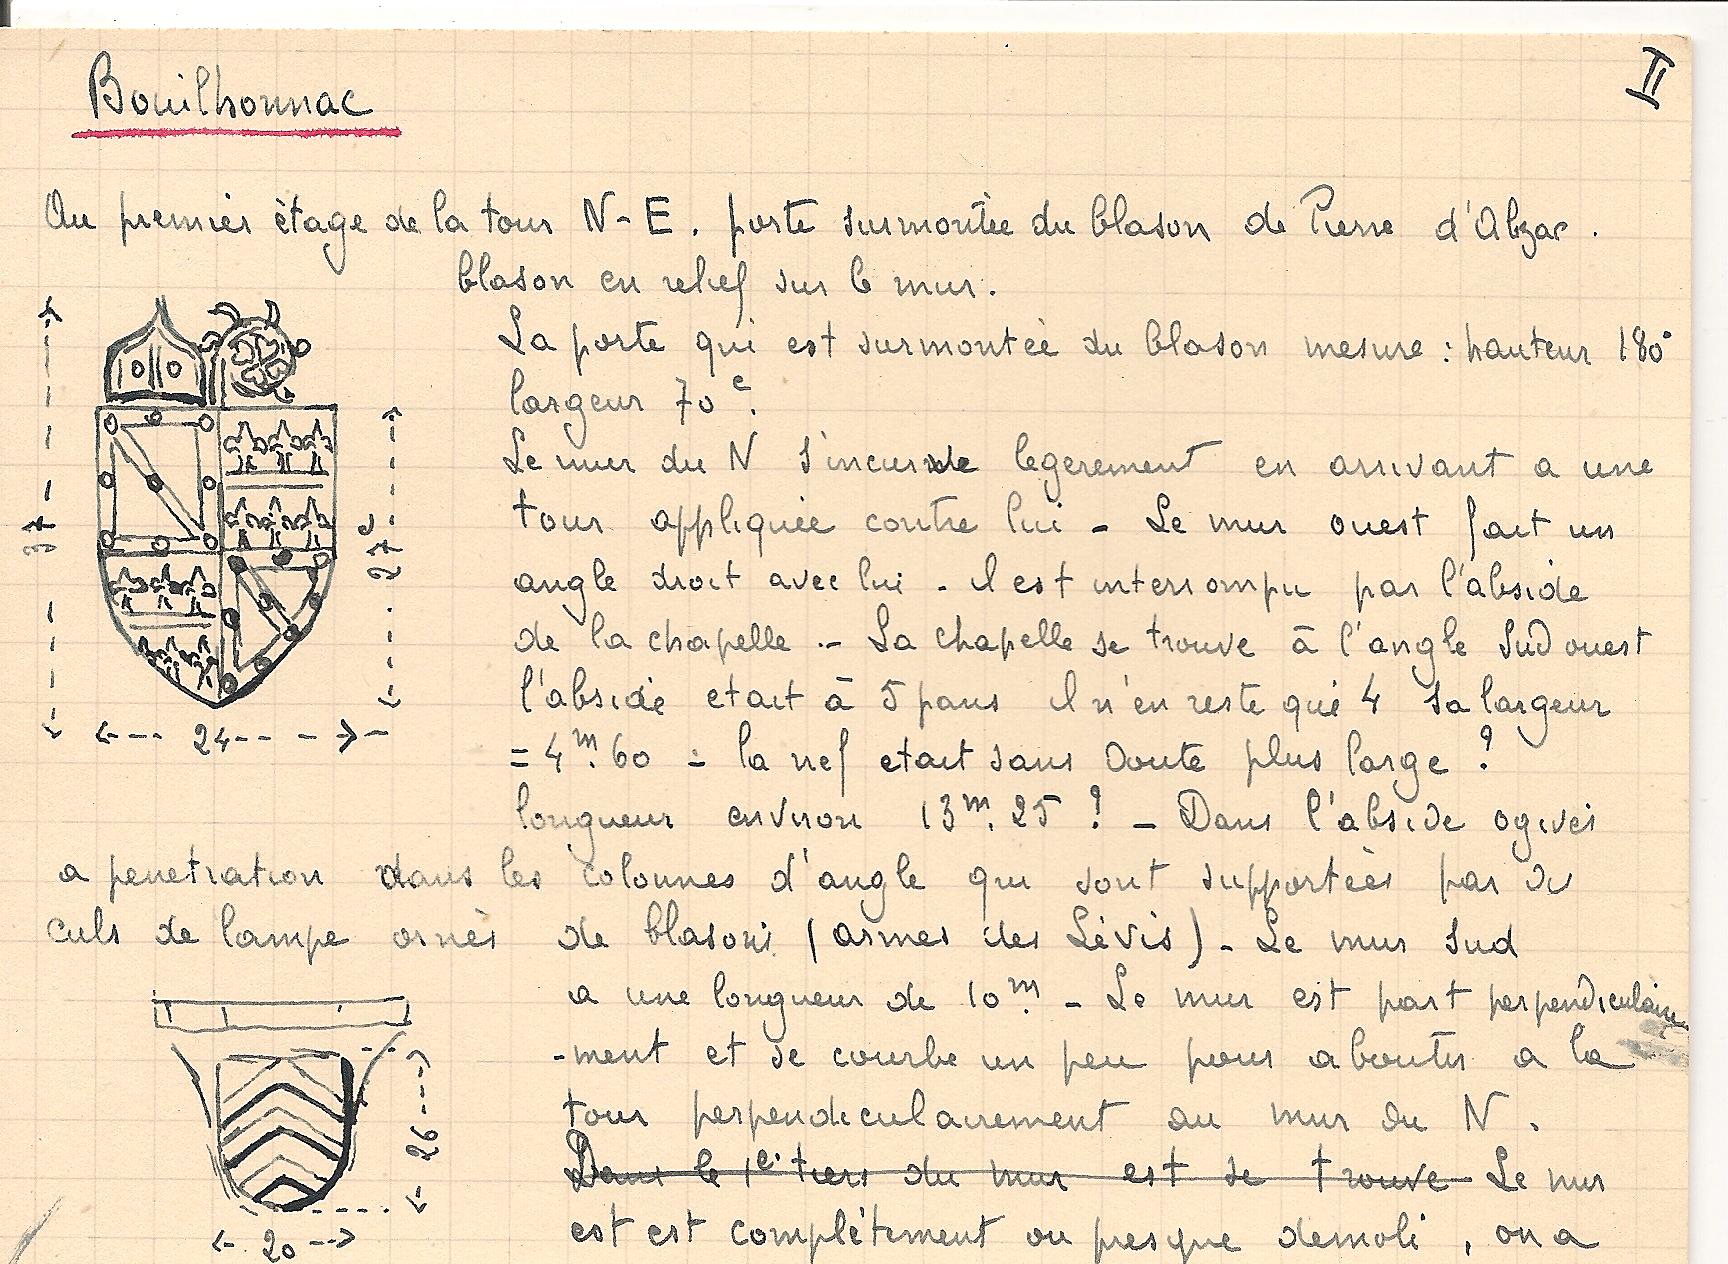 Bouilhonnac
II
Au premier étage de la tour N-E. porte surmontée du blason de Pierre d'Abzac.
blason en relief sur le mur.
La porte qui est surmontée du blason mesure : hauteur 180c
largeur 70c.
Le mur du N s'incurve legerement en arrivant a une
tour appliquée contre lui - Le mur ouest fait un
angle droit avec lui - il est interrompu par l'abside
de la chapelle .- La chapelle se trouve à l'angle Sud ouest
l'abside etait à 5 pans il n'en reste que 4 sa largeur
= 4m.60 = la nef etait sans doute plus large ?
longueur environ 13m.25 ? - Dans l'abside ogives
a penetration dans les colonnes d'angle qui sont supportées par des
culs de lampe ornés de blasons (armes des Lévis) - Le mur sud
a une longueur de 10m. - Le mur est part perpendiculaire
-ment et se courbe un peu pour aboutir a la
tour perpendiculairement au mur du N.
Dans le 1e. tiers du mur est se trouve Le mur
est est complétement ou presque demoli, on a
37
27c
24
26
20